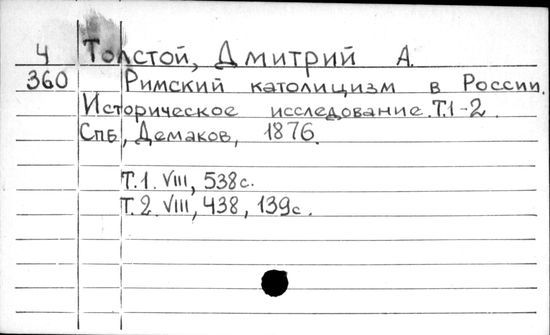 4 Толстой, Дмитрий А.
360 Римский католицизм в России.
Историческое исследование. Т.1-2.
Спб, Демаков, 1876.
Т.1. VIII, 538с.
Т.2. VIII, 438, 139с.